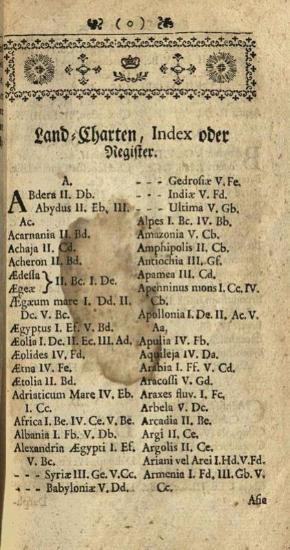 ( o )
Land-Charten, Index oder
Register.
A.
Abdera II. Db.
Abydus II. Eb, III.
Ac.
Acarnania II. Bd.
Achaja II. Cd.
Acheron II. Bd.
Ædessa
Ægeæ } II. Bc. I. De.
Ægæum mare I. Dd. II.
Dc. V. Bc.
Ægyptus I. Ef. V. Bd.
Æolia I. De. II. Ec. III. Ad,
Æolides IV. Fd,
Ætna IV. Fe.
Ætolia II. Bd.
Adriaticum Mare IV, Eb.
I. Cc.
Africa I. Be. IV. Ce. V. Be.
Albania I. Fb. V. Db.
Alexandria Ægypti I. Ef.
V. Bc.
- - - Syriæ III. Ge. V. Cc.
- - - Babyloniæ V. Dd.
- - - Gedrosiæ V. Fe.
- - - Indiæ V. Fd.
- - - Ultima V. Gb.
Alpes I. Bc. IV. Bb.
Amazonia V. Cb.
Amphipolis II. Cb.
Antiochia III. Gf.
Apamea III. Cd.
Apenninus mons I. Cc. IV.
Cb.
Apollonia I. De. II. Ac. V.
Aa,
Apulia IV. Fb.
Aquileja IV. Da.
Arabia I. Ff. V. Cd.
Aracossi V. Gd.
Araxes fluv. I. Fc.
Arbela V. Dc.
Arcadia II. Be.
Argi II, Ce,
Argolis II. Ce.
Ariani vel Arei I.Hd.V.Fd.
Armenia I. Fd, III. Gb. V.
Cc.
Asia